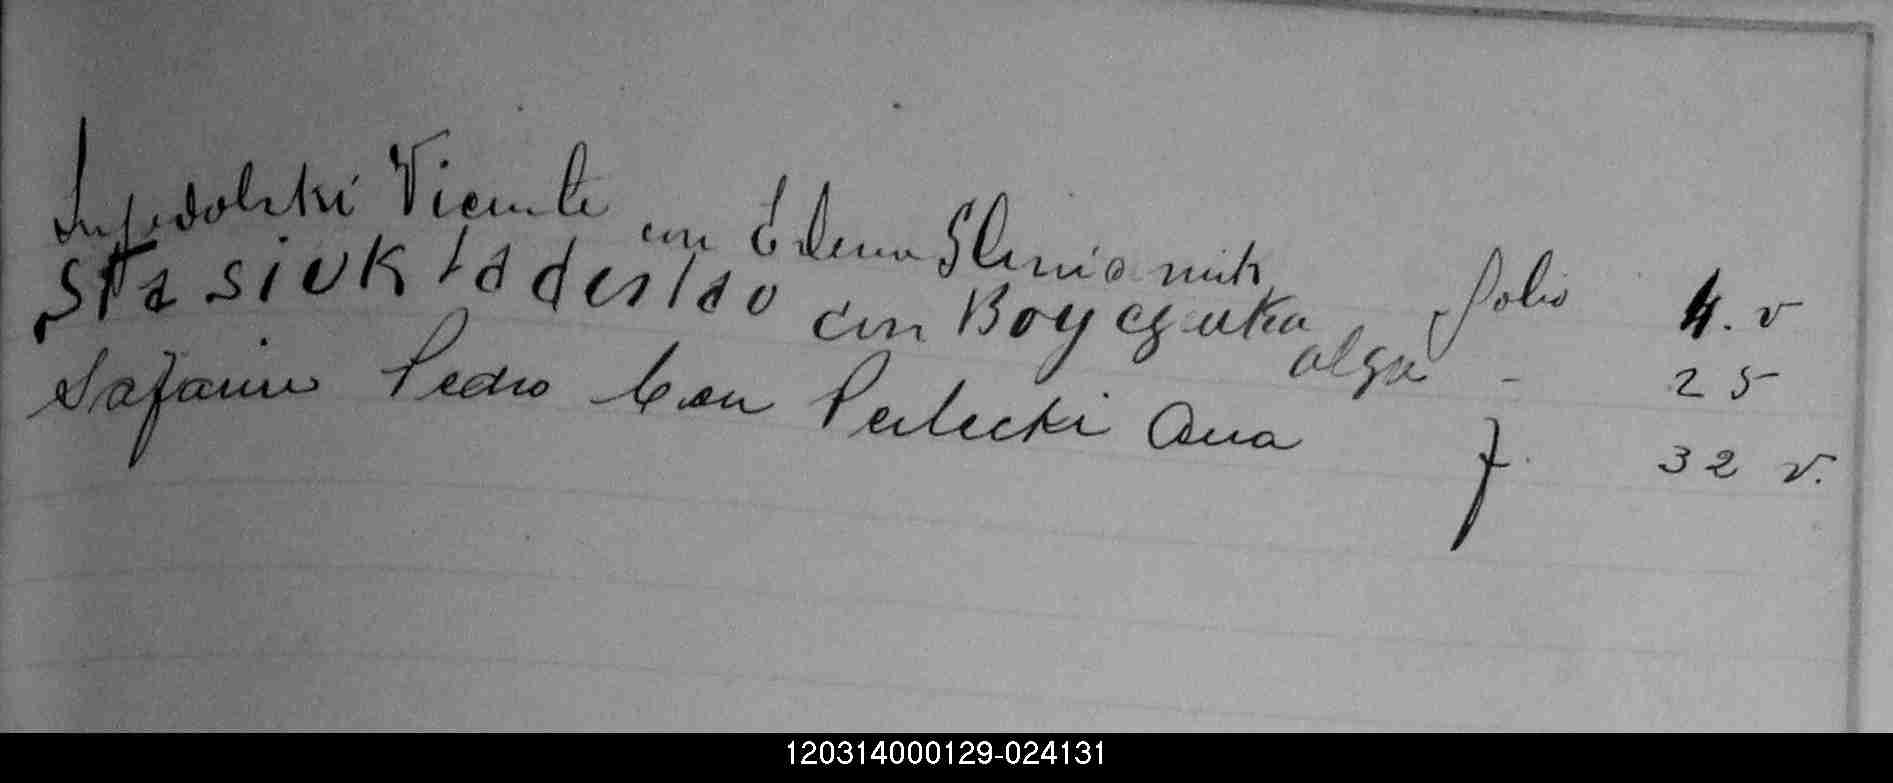 Vicente con Elena folio 4. v
Stasiuk Ladeslao con Boyczuka olga - 25
Safanie Pedro Con Perlecki Ana f. 32 v.
120314000129-024131